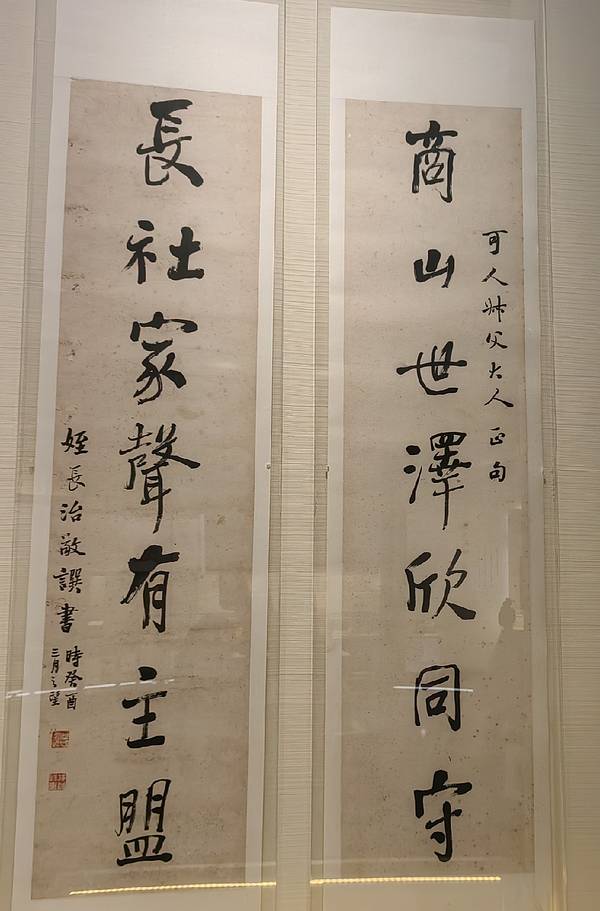 可人叔父大人正句
商山世澤欣同守
長社家聲有主盟
姪長治敬譔書
時癸酉
三月之望